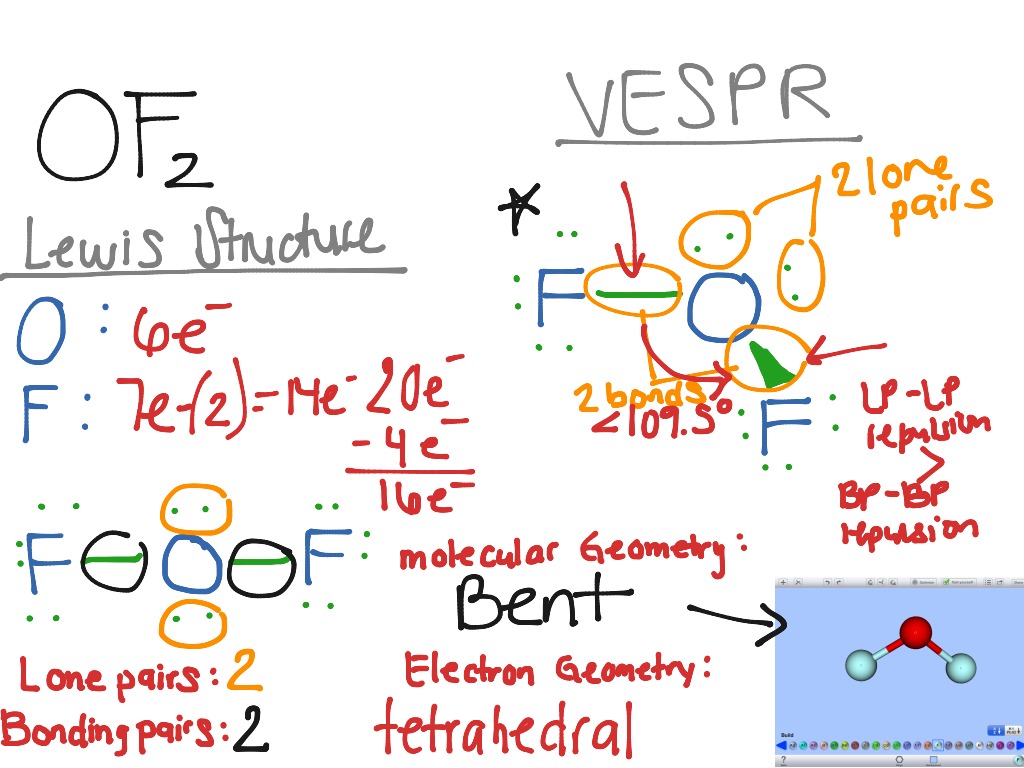 OF2
Lewis Structure
O : 6e-
F : 7e-(2)=14e-
20e-
-4e-
16e-
F O F
Lone pairs: 2
Bonding pairs: 2
VESPR
2 lone
pairs
F O
2 bonds
<109.5°
F
LP-LP
repulsion
>
BP-BP
repulsion
molecular Geometry:
Bent
Electron Geometry:
tetrahedral
Build